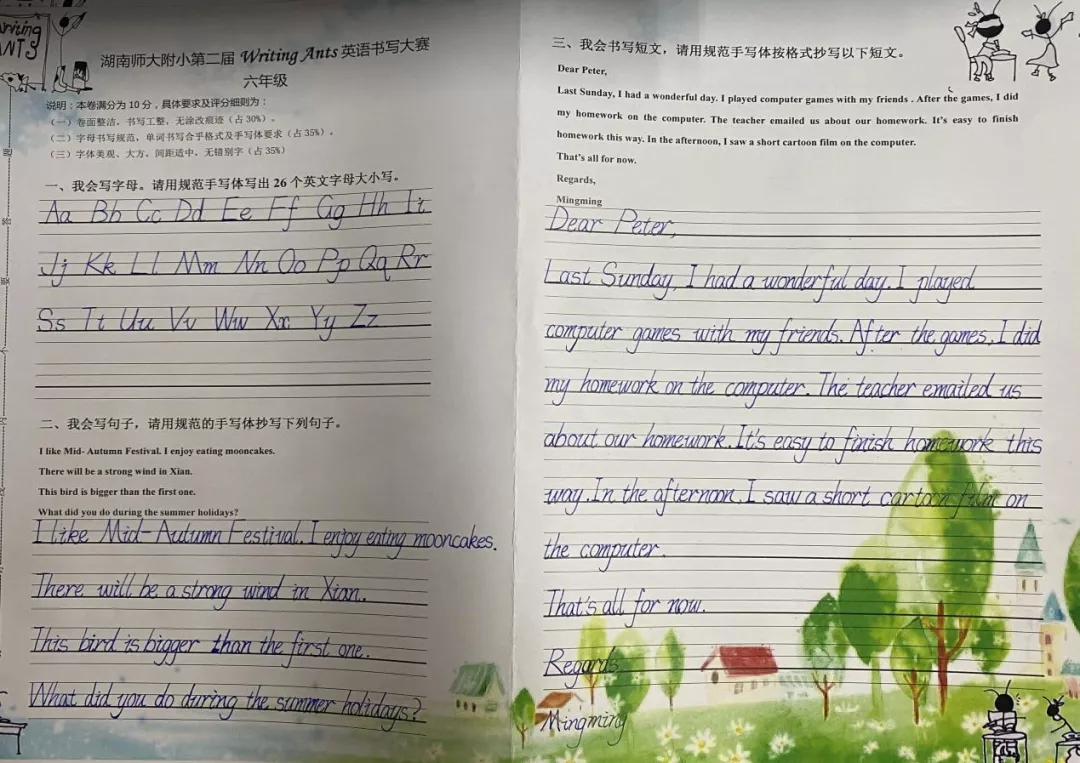 Writing
ANTS
湖南师大附小第二届 Writing Ants 英语书写大赛
六年级
说明：本卷满分为 10 分，具体要求及评分细则为：
（一）卷面整洁，书写工整，无涂改痕迹（占 30%）。
（二）字母书写规范，单词书写合乎格式及手写体要求（占 35%）。
（三）字体美观、大方，间距适中，无错别字（占 35%）
一、我会写字母。请用规范手写体写出 26 个英文字母大小写。
Aa Bb Cc Dd Ee Ff Gg Hh Ii
Jj Kk Ll Mm Nn Oo Pp Qq Rr
Ss Tt Uu Vv Ww Xx Yy Zz
二、我会写句子，请用规范的手写体抄写下列句子。
I like Mid- Autumn Festival. I enjoy eating mooncakes.
There will be a strong wind in Xian.
This bird is bigger than the first one.
What did you do during the summer holidays?
I like Mid-Autumn Festival. I enjoy eating mooncakes.
There will be a strong wind in Xian.
This bird is bigger than the first one.
What did you do during the summer holidays?
三、我会书写短文，请用规范手写体按格式抄写以下短文。
Dear Peter,
Last Sunday, I had a wonderful day. I played computer games with my friends . After the games, I did
my homework on the computer. The teacher emailed us about our homework. It's easy to finish
homework this way. In the afternoon, I saw a short cartoon film on the computer.
That's all for now.
Regards,
Mingming
Dear Peter,
Last Sunday, I had a wonderful day. I played
computer games with my friends. After the games, I did
my homework on the computer. The teacher emailed us
about our homework. It's easy to finish homework this
way. In the afternoon, I saw a short cartoon film on
the computer.
That's all for now.
Regards,
Mingming